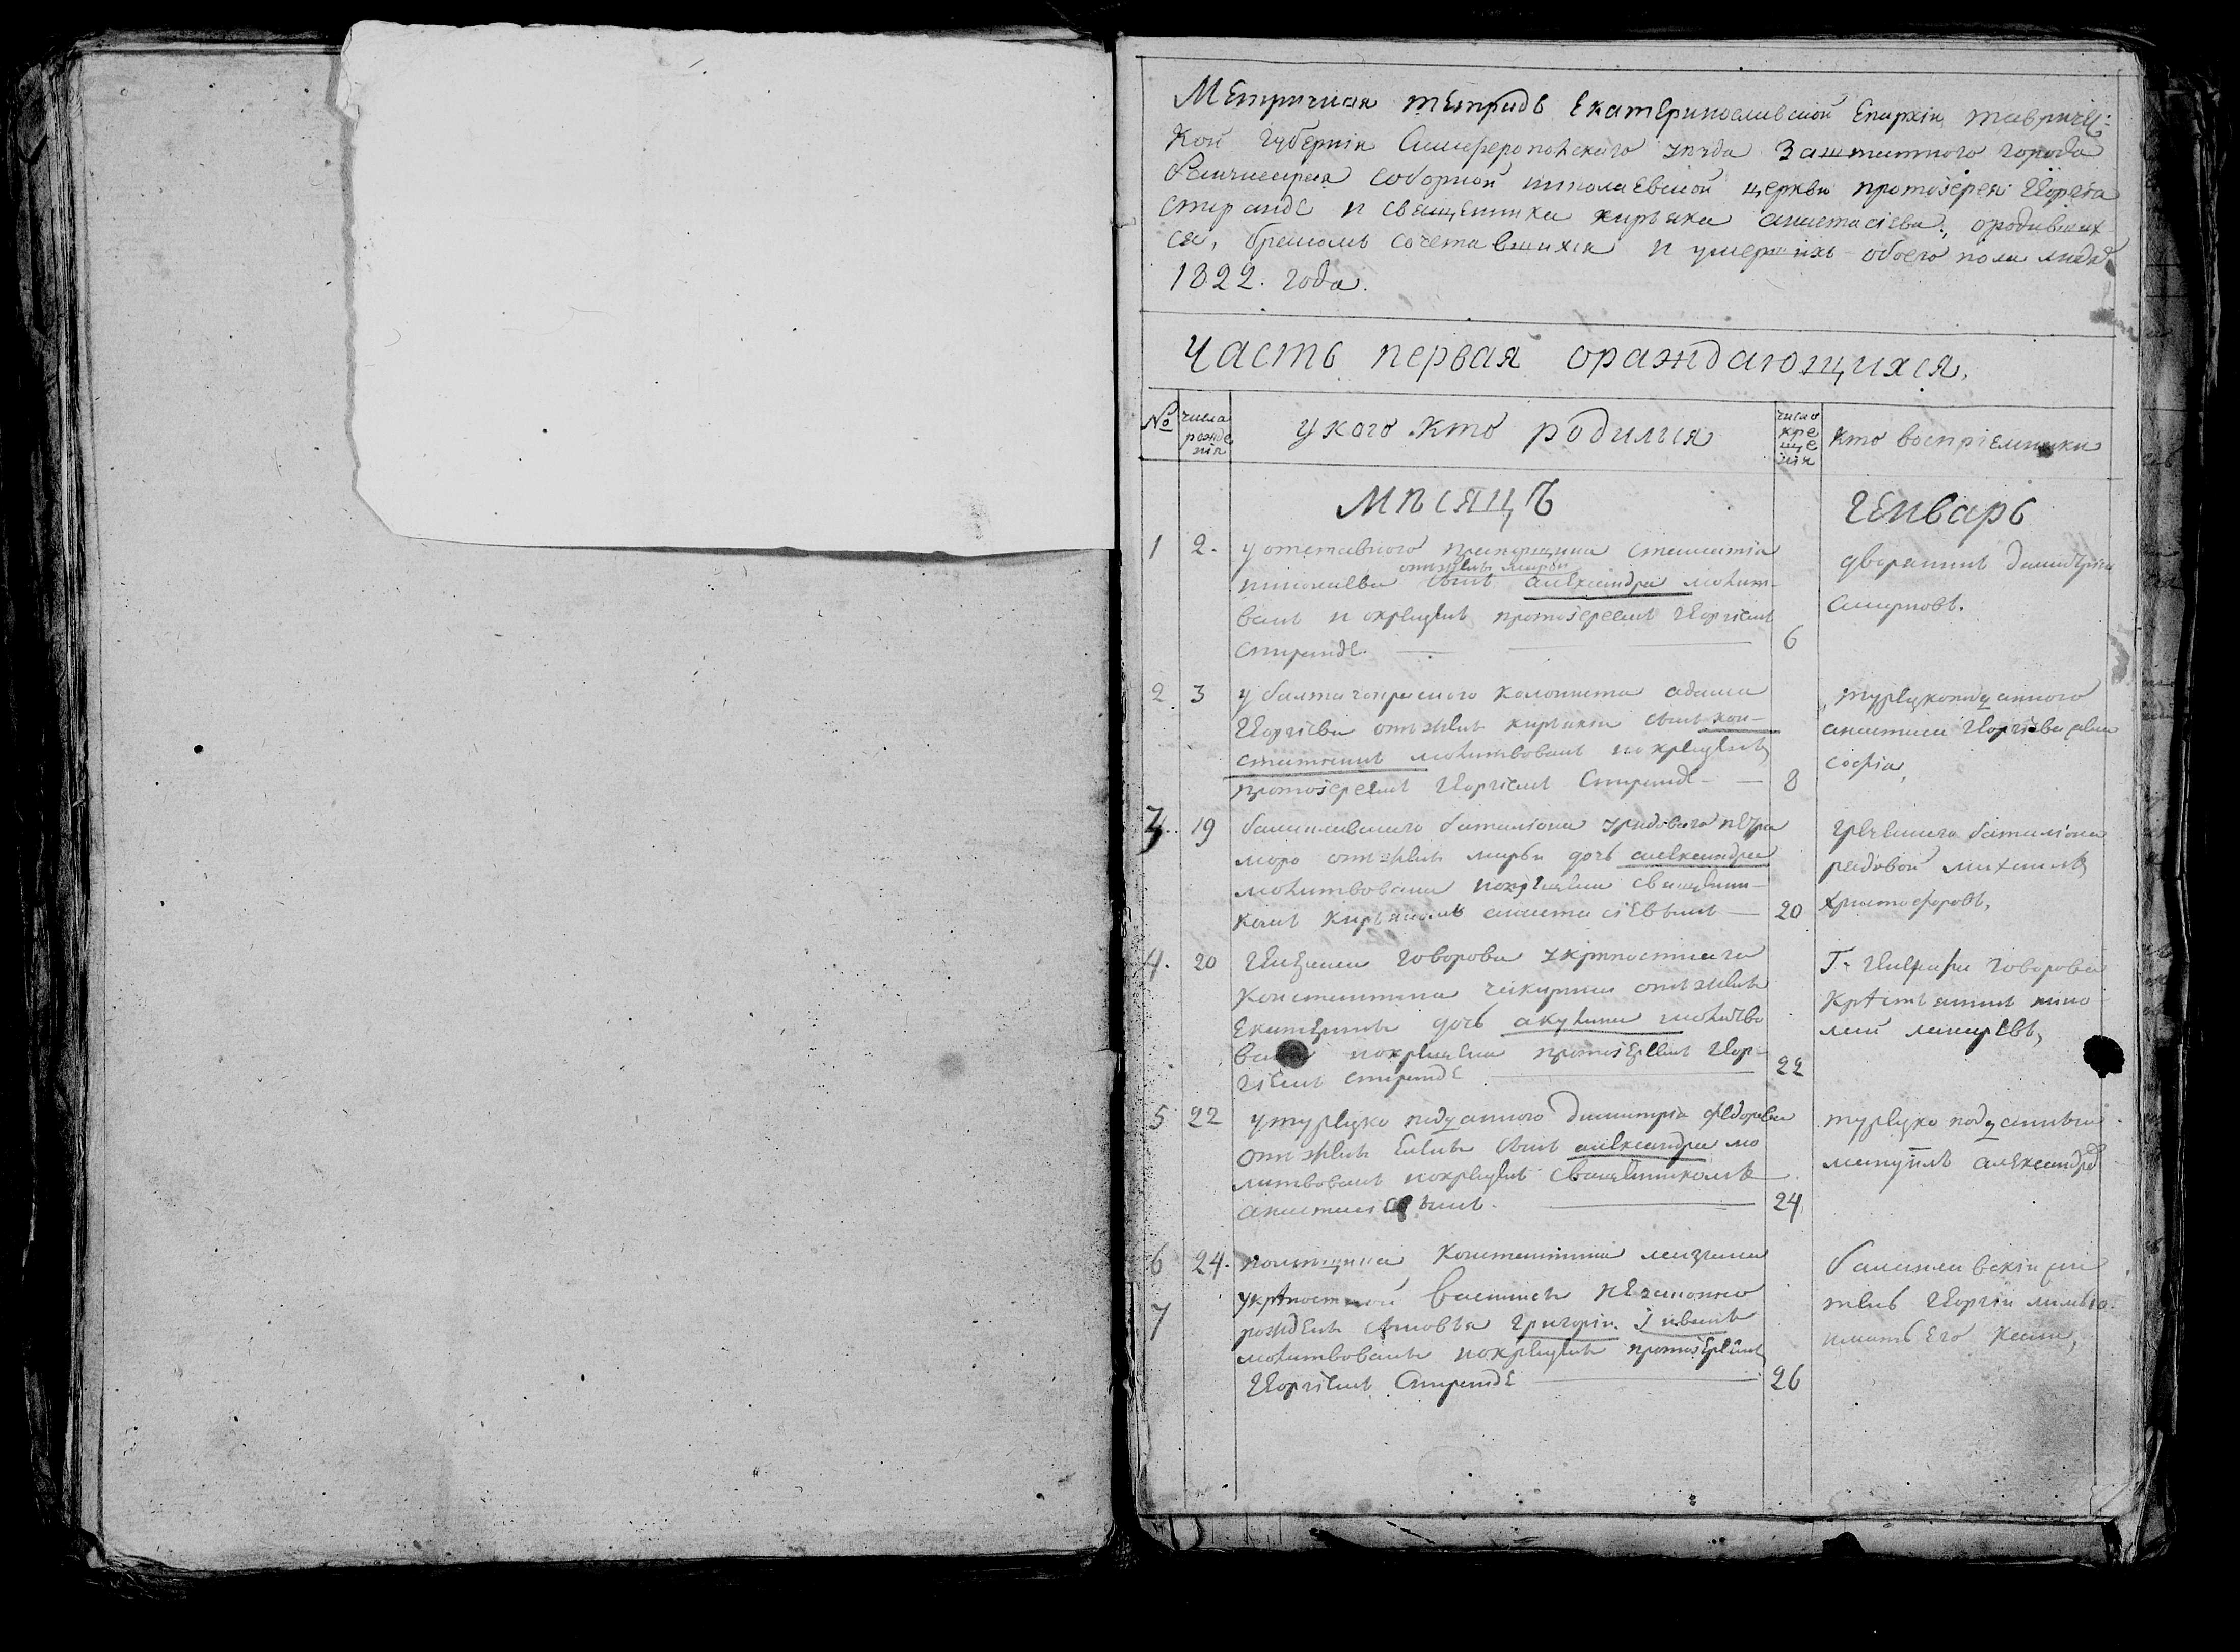 Метричная тетрадь Екатеринославской Епархіи Тавричес:
кой губерніи Симферопольскаго уѣзда Заштатного города
соборной николаевской церкви протоіерея Георгіа
стиранде и священника кирьяка анастасіева, ородивших
ся, бракомъ сочетавшихся и умершихъ обоего пола людѣ
1822. года.
Часть первая ораждающихся.
№
числа рожде нія
у кого кто родился
число кре ще нія
кто воспріемники
Мѣсяцъ
Генварь
1 2. у отставного прапорщика
отъ жены марьи
николаева сынъ александръ молит-
ванъ и окрещенъ протоіереемъ Георгіемъ
стиранде. 6
дворянинъ димитрій
смирновъ.
2 3 у балтачокракского колониста адама
Георгіева отъ жены киріакіи сынъ кон-
стантинъ молитвованъ и окрещенъ
протоіереемъ Георгіемъ Стиранде 8
турецкоподданного
анастаса Георгіева
софіа,
3. 19 балаклавскаго баталіона урядоваго петра
моро отъ жены марьи дочь александра
молитвована и окрещена священни-
комъ Кирьякомъ анастасіевымъ 20
греческаго баталіона
рядовой михаилъ
христофоровъ,
4. 20 говорова укрѣпостнаго
Константина отъ жены
Екатерины дочь акулина молитво
вана и окрещена протоіереемъ Геор-
гіемъ стиранде 22
Г. говорова
Крѣстьянинъ нико
лай
5 22 у турецко подданного димитріа федорова
отъ жены Елены сынъ александръ мо
литвованъ и окрещенъ священникомъ
анастасіевымъ. 24
турецко подданный
мануилъ александръ
6 24. помѣщика Константина
7 укрѣпостной василисы незаконно
рождены сыновья григорій. Iиванъ
молитвованы и окрещены протоіереемъ
Георгіемъ Стиранде 26
балаклавскій жи
тель Георгій
его